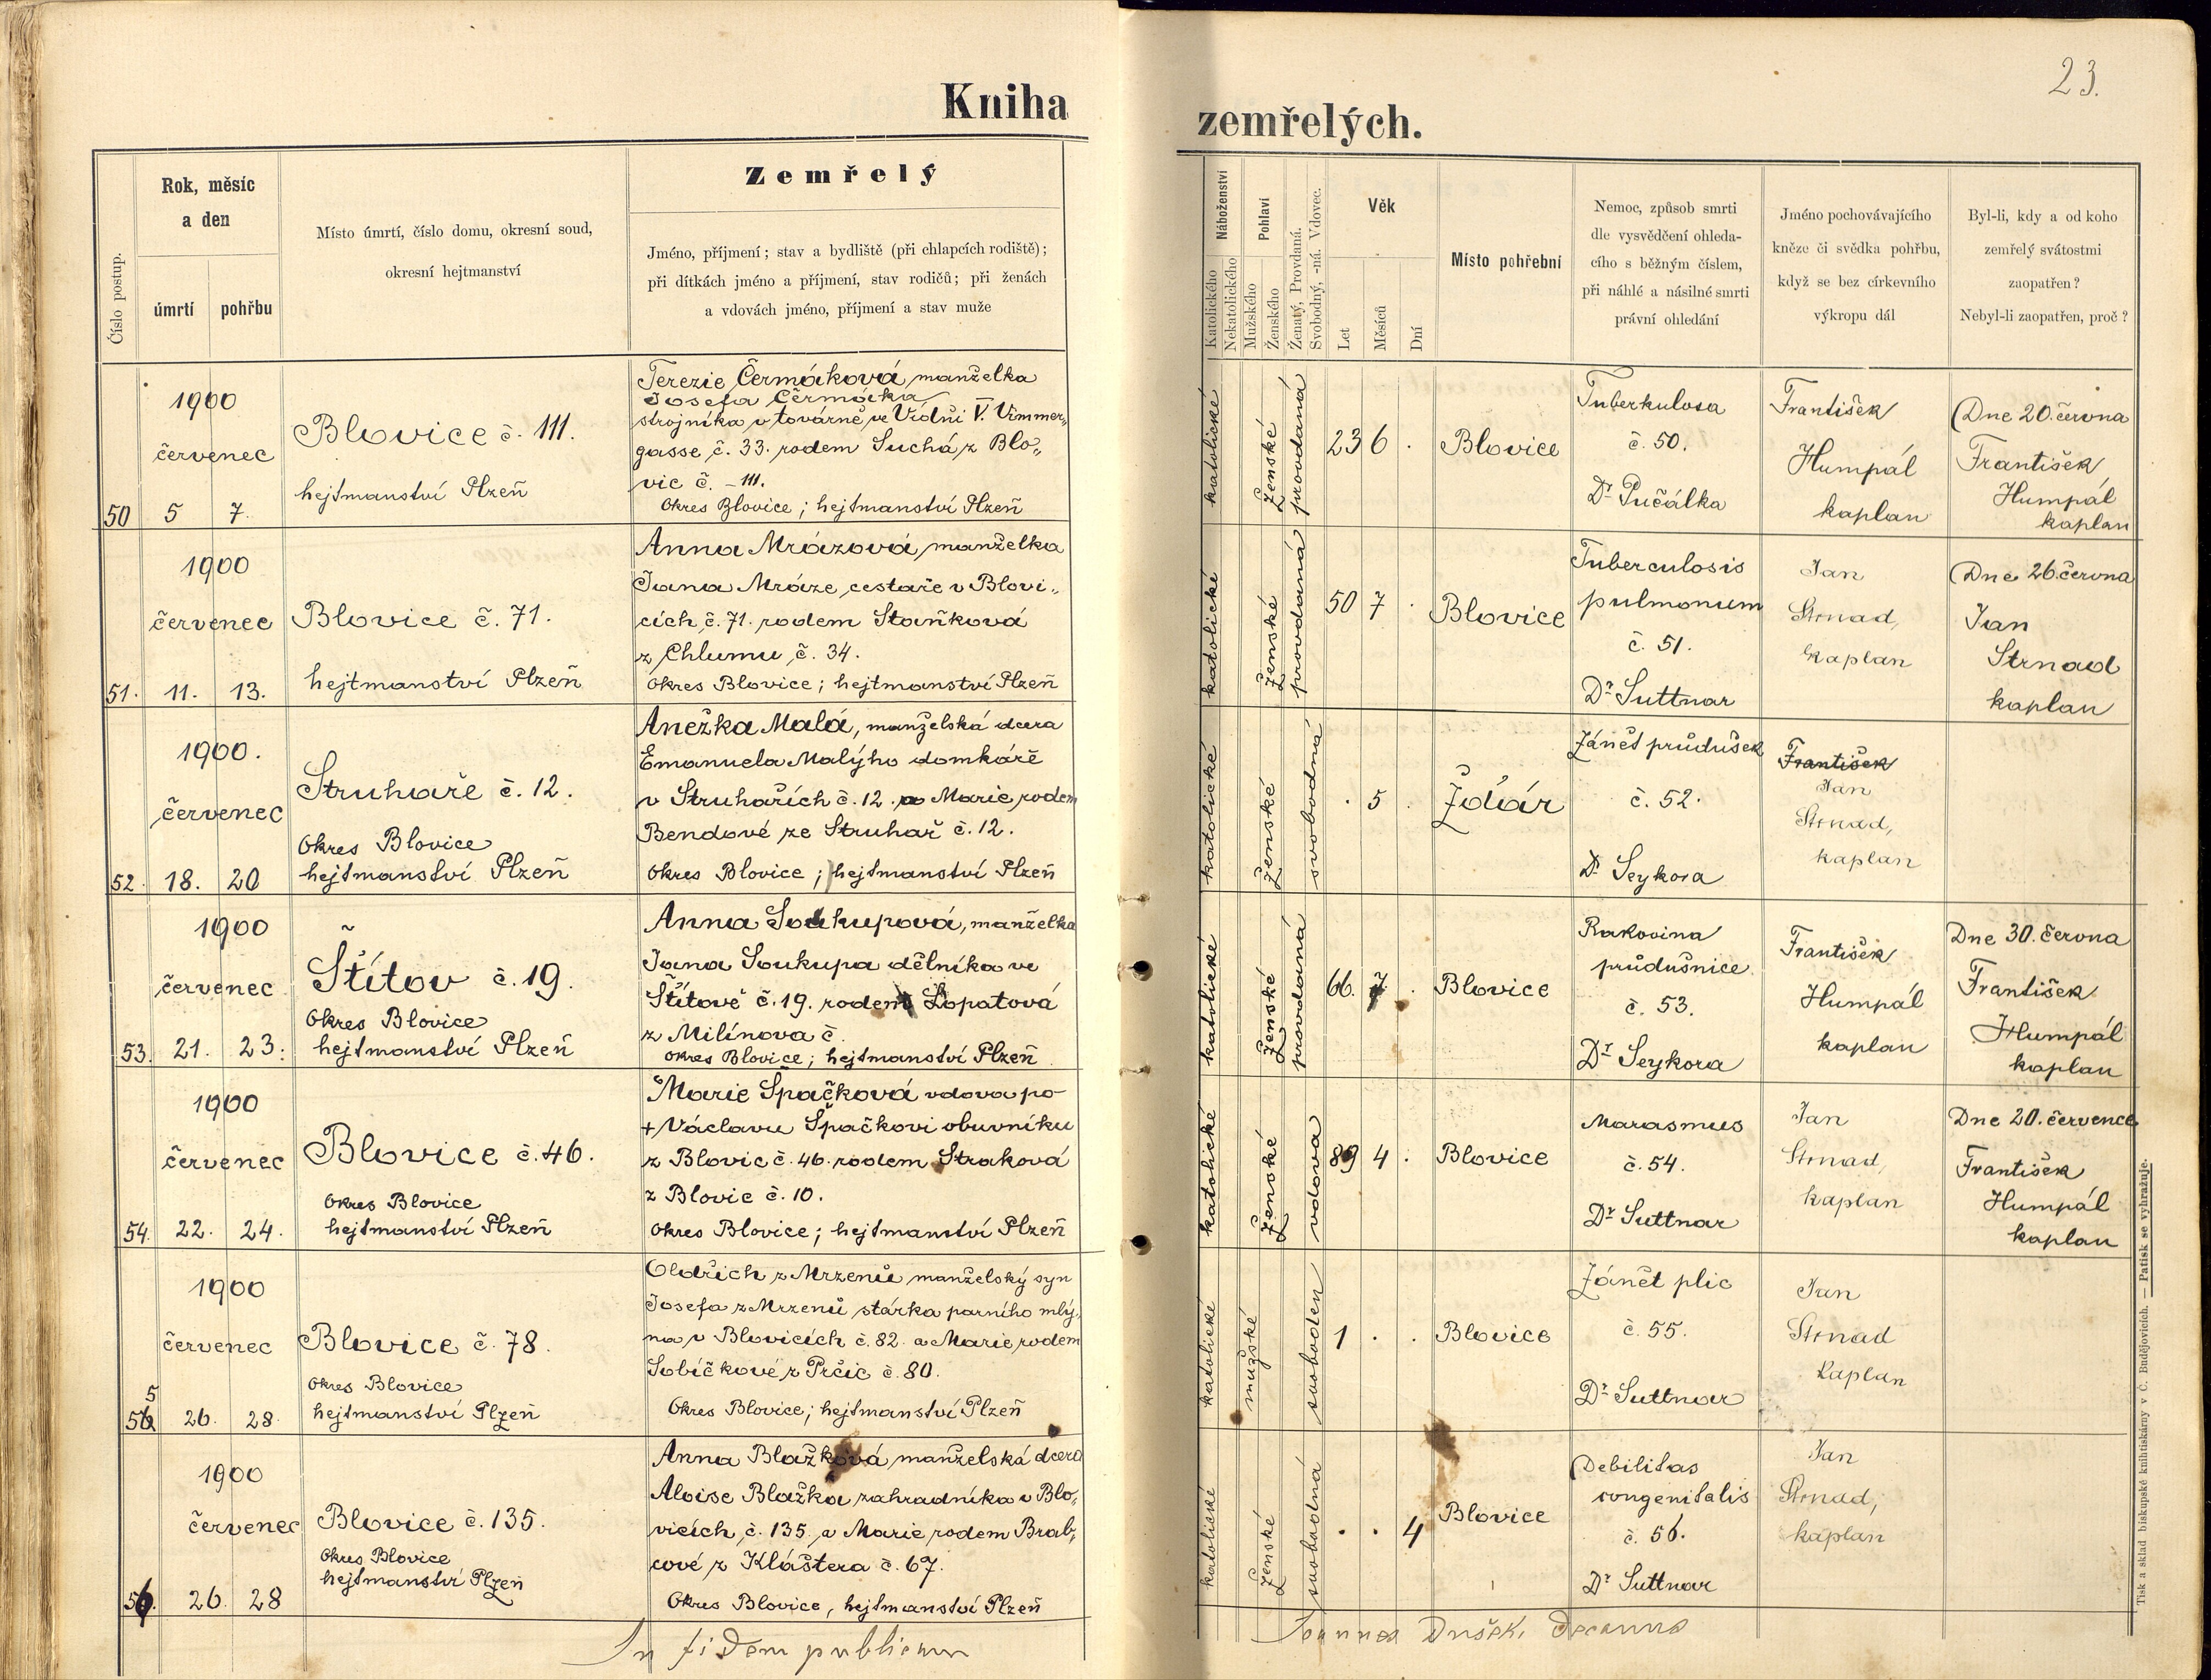 23.
Kniha
zemřelých.
Číslo postup.
Rok, měsíc
a den
úmrtí
pohřbu
Místo úmrtí, číslo domu, okresní soud,
okresní hejtmanství
Zemřelý
Jméno, příjmení; stav a bydliště (při chlapcích rodiště);
při dítkách jméno a příjmení, stav rodičů; při ženách
a vdovách jméno, příjmení a stav muže
Náboženství
Katolického
Nekatolického
Pohlaví
Mužského
Ženského
Ženatý, Provdaná.
Svobodný, -ná. Vdovec.
Věk
Let
Měsíců
Dní
Místo pohřební
Nemoc, způsob smrti
dle vysvědčení ohleda-
cího s běžným číslem,
při náhlé a násilné smrti
právní ohledání
Jméno pochovávajícího
kněze či svědka pohřbu,
když se bez církevního
výkropu dál
Byl-li, kdy a od koho
zemřelý svátostmi
zaopatřen?
Nebyl-li zaopatřen, proč?
50
1900
červenec
5
7.
Blovice č. 111.
hejtmanství Plzeň
Terezie Čermáková, manželka
Josefa Čermáka
strojníka v továrně ve Vídni V. Vimmer„
gasse č. 33. rodem Suchá z Blo„
vic č. – 111.
Okres Blovice; hejtmanství Plzeň
katolické
ženské
provdaná
23
6
.
Blovice
Tuberkulosa
č. 50.
Dr Pučálka
František
Humpál
kaplan
Dne 20. června
František
Humpál
kaplan
51.
1900
červenec
11.
13.
Blovice č. 71.
hejtmanství Plzeň
Anna Mrázová, manželka
Jana Mráze, cestaře v Blovi„
cích č. 71. rodem Staňková
z Chlumu č. 34.
Okres Blovice; hejtmanství Plzeň
katolické
ženské
provdaná
50
7
.
Blovice
Tuberculosis
pulmonum
č. 51.
Dr Suttnar
Jan
Strnad,
kaplan
Dne 26. června
Jan
Strnad
kaplan
52.
1900.
červenec
18.
20
Struhaře č. 12.
Okres Blovice
hejtmanství Plzeň
Anežka Malá, manželská dcera
Emanuela Malýho domkáře
v Struhařích č. 12. a Marie rodem
Bendové ze Struhař č. 12.
Okres Blovice; hejtmanství Plzeň
katolické
ženské
svobodná
.
5
.
Ždiár
Zánět průdušek
č. 52.
Dr Seykora
František
Jan
Strnad,
kaplan
53.
1900
červenec
21.
23.
Štítov č. 19.
Okres Blovice
hejtmanství Plzeň
Anna Soukupová, manželka
Jana Soukupa dělníka ve
Štítově č. 19. rodem Lopatová
z Milínova č.
Okres Blovice; hejtmanství Plzeň
katolické
ženské
provdaná
66.
7
.
Blovice
Rakovina
průdušnice
č. 53.
Dr Seykora
František
Humpál
kaplan
Dne 30. června
František
Humpál
kaplan
54.
1900
červenec
22.
24.
Blovice č. 46.
Okres Blovice
hejtmanství Plzeň
Marie Špačková vdova po
+ Václavu Špačkovi obuvníku
z Blovic č. 46. rodem Straková
z Blovic č. 10.
Okres Blovice; hejtmanství Plzeň
katolické
ženské
vdova
89
4
.
Blovice
Marasmus
č. 54.
Dr Suttnar
Jan
Strnad,
kaplan
Dne 20. července
František
Humpál
kaplan
5
56
1900
červenec
26.
28.
Blovice č. 78.
Okres Blovice
hejtmanství Plzeň
Oldřich z Mrzenů manželský syn
Josefa z Mrzenů stárka parního mlý„
na v Blovicích č. 82. a Marie rodem
Sobíčkové z Prčic č. 80.
Okres Blovice; hejtmanství Plzeň
katolické
mužské
svoboden
1
.
.
Blovice
Zánět plic
č. 55.
Dr Suttnar
Jan
Strnad
kaplan
56.
1900
červenec
26.
28
Blovice č. 135.
Okres Blovice
hejtmanství Plzeň
Anna Blažková manželská dcera
Aloise Blažka zahradníka v Blo„
vicích č. 135. a Marie rodem Brab„
cové z Kláštera č. 67.
Okres Blovice, hejtmanství Plzeň
katolické
ženské
svobodná
.
.
4
Blovice
Debilitas
congenitalis
č. 56.
Dr Suttnar
Jan
Strnad,
kaplan
In fidem publicam
Joannes Dušek, Decanus
Tisk a sklad biskupské knihtiskárny v Č. Budějovicích. — Patisk se vyhražuje.